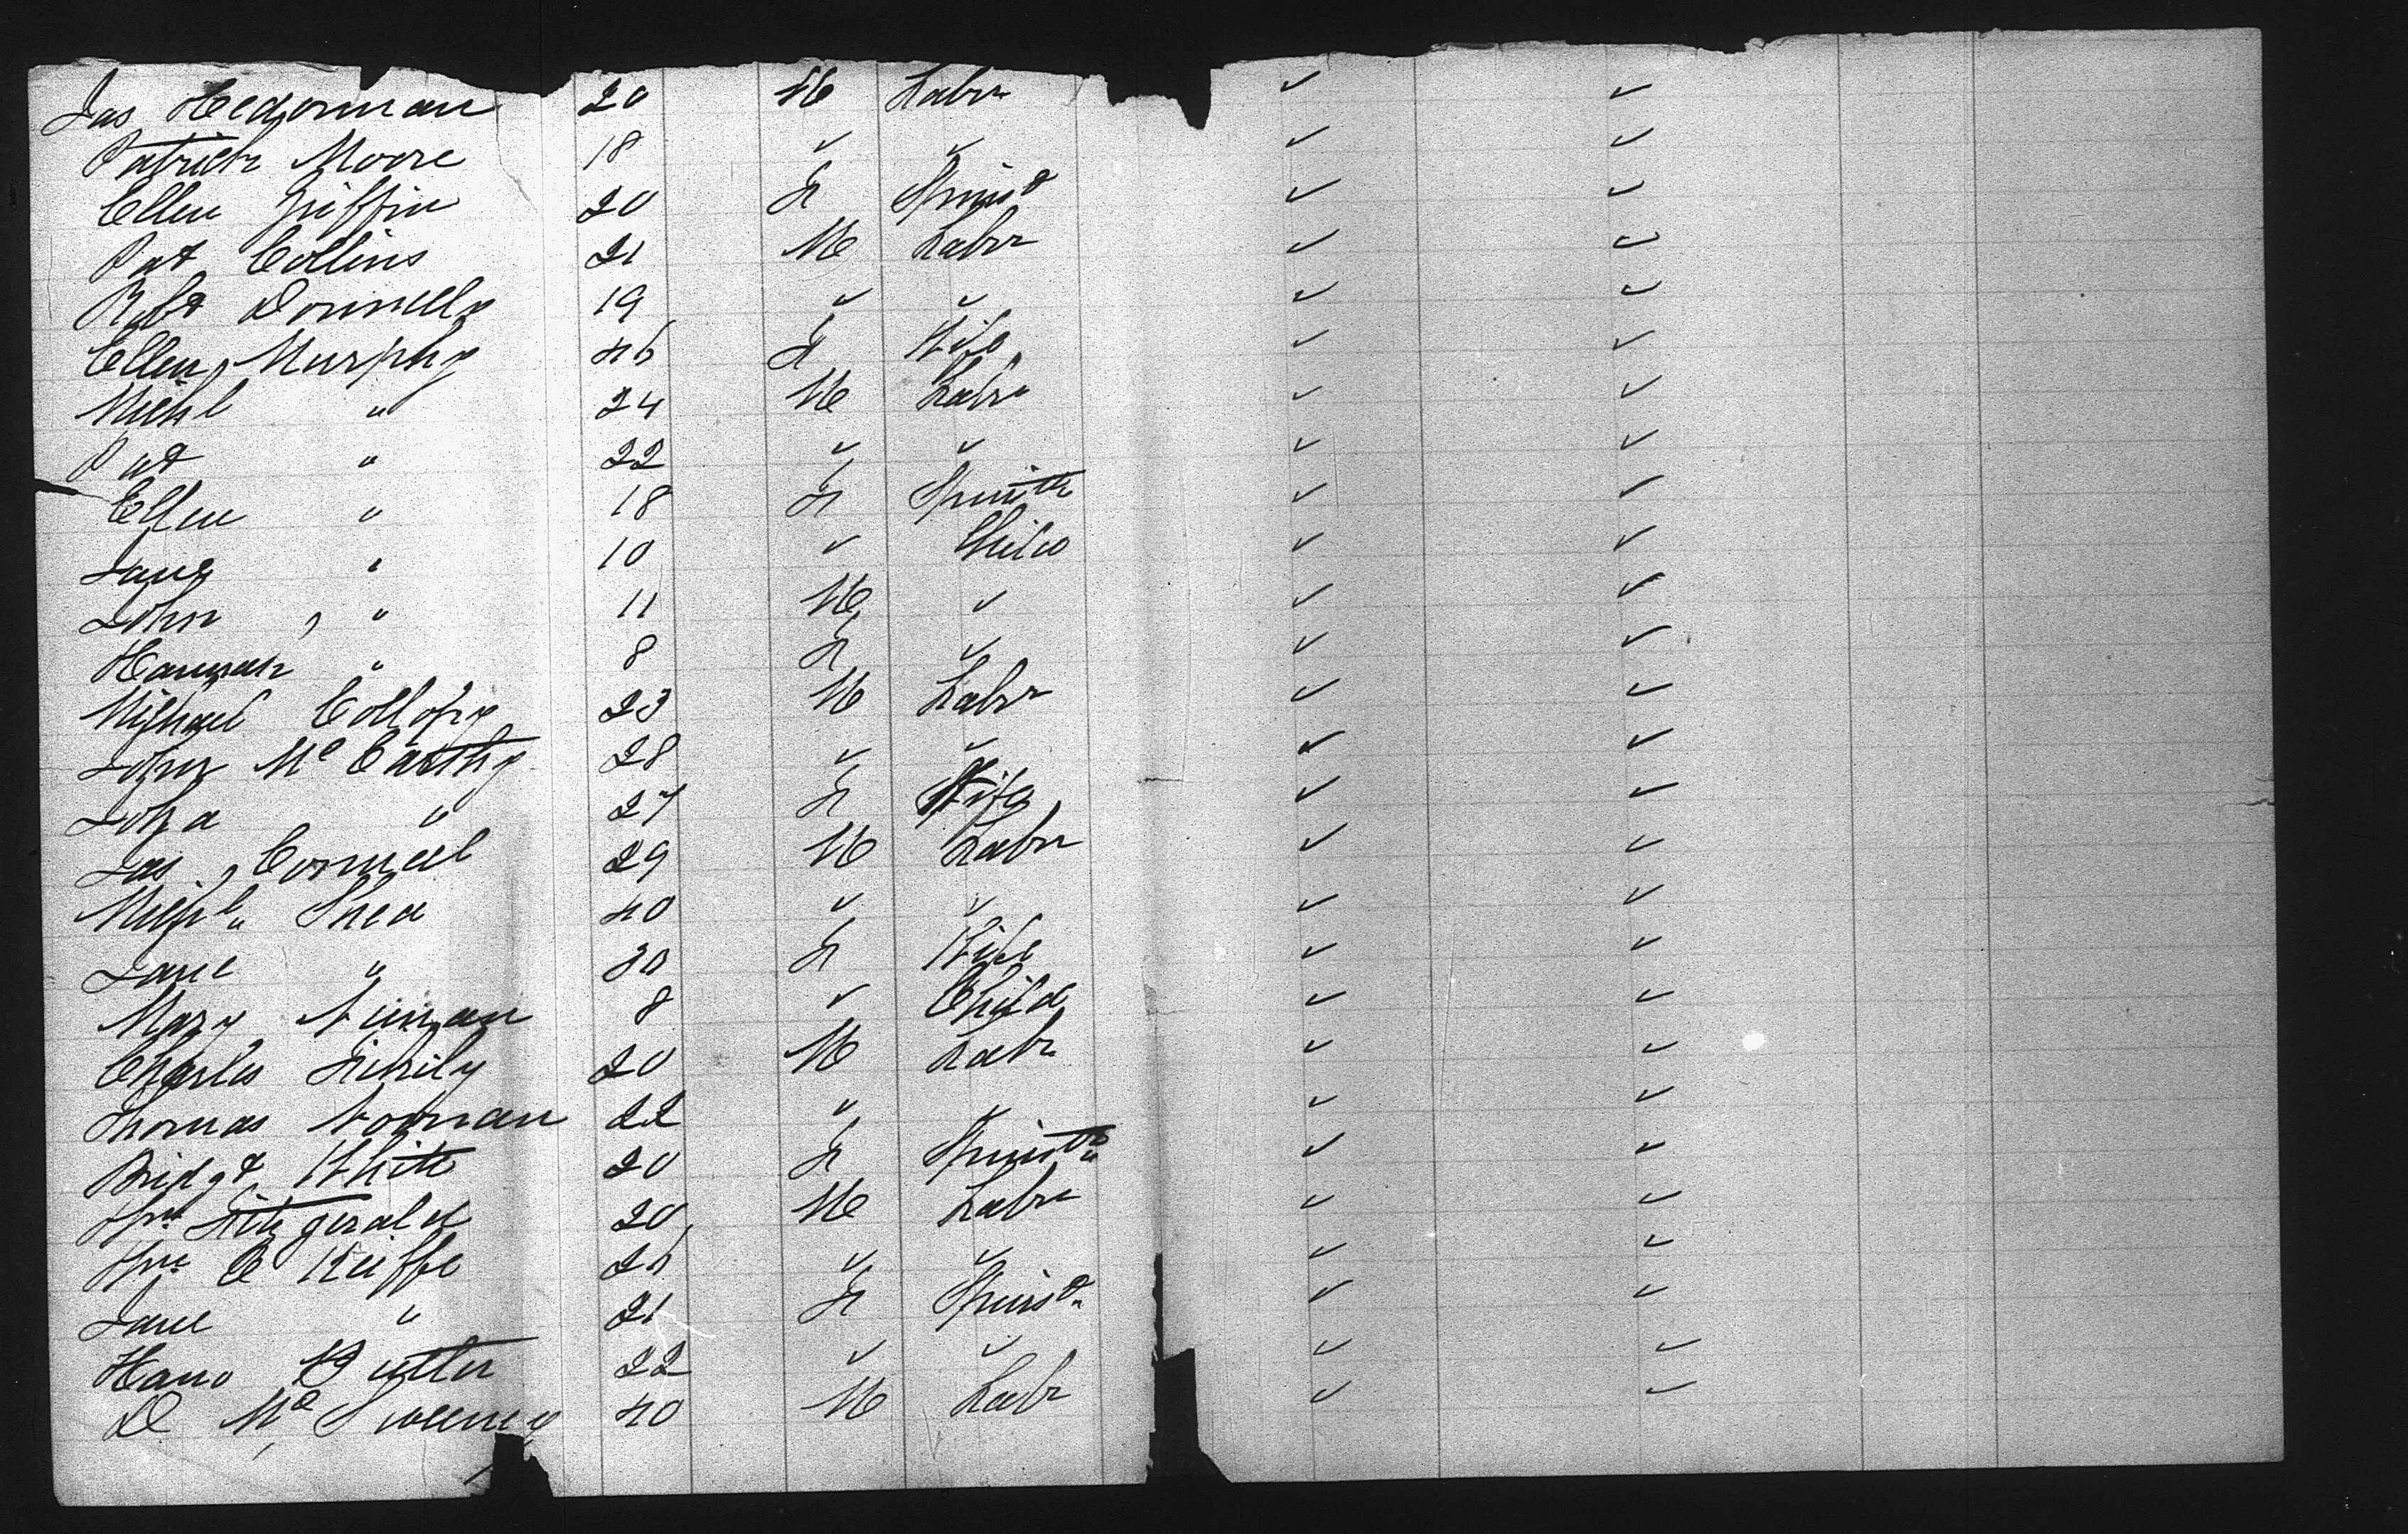 Jas Hedorman 20 M Labr ✓ ✓
Patrick Moore 18 ✓ ✓ ✓ ✓
Ellen Griffin 20 F Spinst ✓ ✓
Pat Collins 21 M Labr ✓ ✓
Robt Donnelly 19 ✓ ✓ ✓ ✓
Ellen Murphy 46 F Wife ✓ ✓
Michl " 24 M Labr ✓ ✓
Pat " 22 ✓ ✓ ✓ ✓
Ellen " 18 F Spinstr ✓ ✓
Jane " 10 ✓ Child ✓ ✓
John " 11 M ✓ ✓ ✓
Hannah " 8 F ✓ ✓ ✓
Michael Collopy 23 M Labr ✓ ✓
John McCarthy 28 ✓ ✓ ✓ ✓
Joha " 27 F Wife ✓ ✓
Jas Connell 29 M Labr ✓ ✓
Michl Shea 40 ✓ ✓ ✓ ✓
Jane " 30 F Wife ✓ ✓
Mary Nunan 8 ✓ Child ✓ ✓
Charles 20 M Labr ✓ ✓
Thomas Noonan 22 ✓ ✓ ✓ ✓
Bridgt White 20 F Spinstr ✓ ✓
Wm Fitzgerald 20 M Labr ✓ ✓
Wm O Keiffe 26 ✓ ✓ ✓ ✓
Jane " 21 F Spinst ✓ ✓
Hano Butler 22 ✓ ✓ ✓ ✓
D McSweeney 40 M Labr ✓ ✓